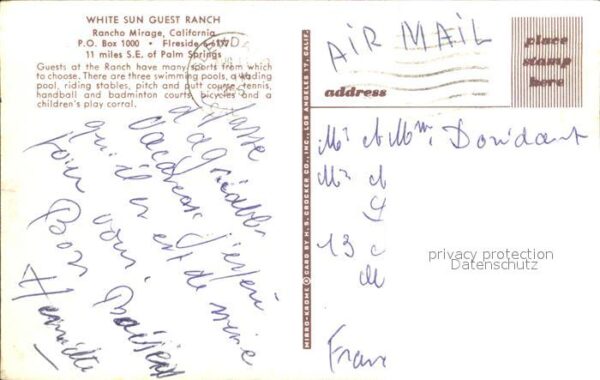 WHITE SUN GUEST RANCH
Rancho Mirage, California
P.O. Box 1000 • Fireside 6-6177
11 miles S.E. of Palm Springs
Guests at the Ranch have many sports from which
to choose. There are three swimming pools, a wading
pool, riding stables, pitch and putt course, tennis,
handball and badminton courts, bicycles and a
children's play corral.
passe
d'agréables
vacances, j'espère
qu'il en est de même
pour vous.
Bons Baisers
Henriette
MIRRO-KROME © CARD BY H. S. CROCKER CO., INC., LOS ANGELES 17, CALIF.
AIR MAIL
address
place
stamp
here
Mr et Mme
Mr et
13
Fran
privacy protection
Datenschutz